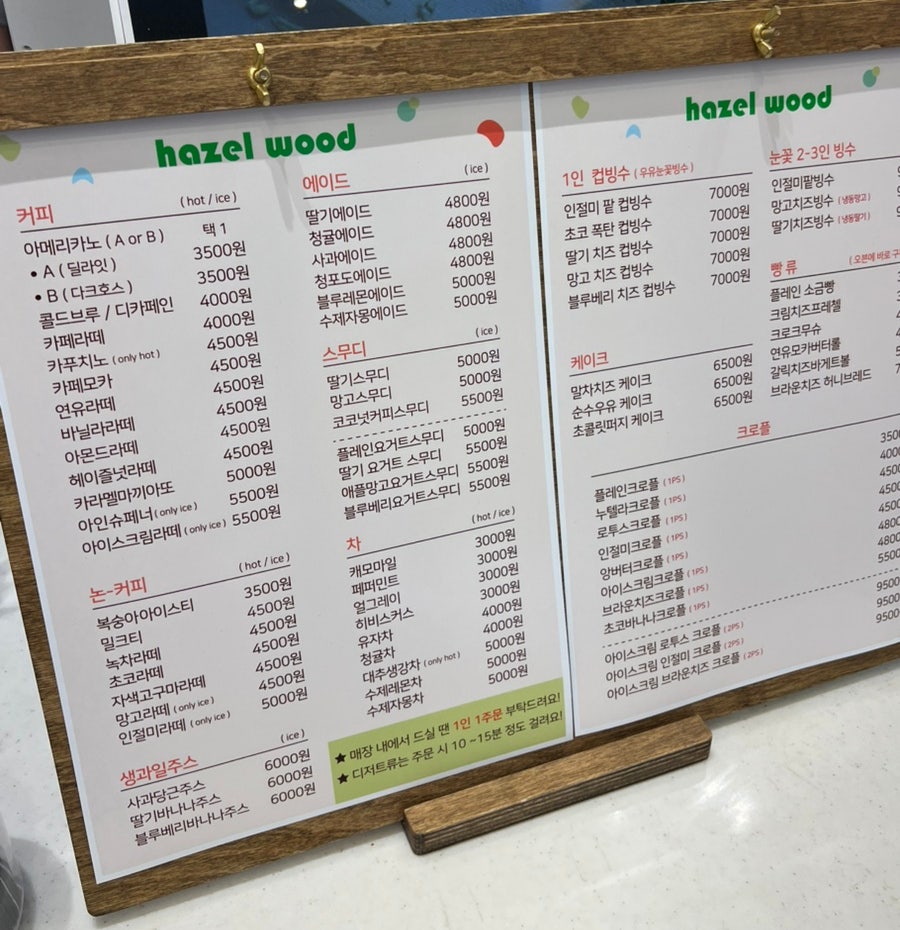 hazel wood
커피 ( hot / ice )
아메리카노 ( A or B ) 택 1
• A ( 딜라잇 ) 3500원
• B ( 다크호스 ) 3500원
콜드브루 / 디카페인 4000원
카페라떼 4000원
카푸치노 ( only hot ) 4500원
카페모카 4500원
연유라떼 4500원
바닐라라떼 4500원
아몬드라떼 4500원
헤이즐넛라떼 4500원
카라멜마끼아또 5000원
아인슈페너 ( only ice ) 5500원
아이스크림라떼 ( only ice ) 5500원
논-커피 ( hot / ice )
복숭아아이스티 3500원
밀크티 4500원
녹차라떼 4500원
초코라떼 4500원
자색고구마라떼 4500원
망고라떼 ( only ice ) 4500원
인절미라떼 ( only ice ) 5000원
생과일주스 ( ice )
사과당근주스 6000원
딸기바나나주스 6000원
블루베리바나나주스 6000원
에이드 ( ice )
딸기에이드 4800원
청귤에이드 4800원
사과에이드 4800원
청포도에이드 4800원
블루레몬에이드 5000원
수제자몽에이드 5000원
스무디 ( ice )
딸기스무디 5000원
망고스무디 5000원
코코넛커피스무디 5500원
플레인요거트스무디 5000원
딸기 요거트 스무디 5500원
애플망고요거트스무디 5500원
블루베리요거트스무디 5500원
차 ( hot / ice )
캐모마일 3000원
페퍼민트 3000원
얼그레이 3000원
히비스커스 3000원
유자차 4000원
청귤차 4000원
대추생강차 ( only hot ) 5000원
수제레몬차 5000원
수제자몽차 5000원
★ 매장 내에서 드실 땐 1인 1주문 부탁드려요!
★ 디저트류는 주문 시 10 ~15분 정도 걸려요!
hazel wood
1인 컵빙수 ( 우유눈꽃빙수 )
인절미 팥 컵빙수 7000원
초코 폭탄 컵빙수 7000원
딸기 치즈 컵빙수 7000원
망고 치즈 컵빙수 7000원
블루베리 치즈 컵빙수 7000원
케이크
말차치즈 케이크 6500원
순수우유 케이크 6500원
초콜릿퍼지 케이크 6500원
눈꽃 2-3인 빙수
인절미팥빙수
망고치즈빙수 ( 냉동망고 )
딸기치즈빙수 ( 냉동딸기 )
빵 류 ( 오븐에 바로
플레인 소금빵
크림치즈프레첼
크로크무슈
연유모카버터롤
갈릭치즈바게트볼
브라운치즈 허니브레드
크로플
플레인크로플 ( 1PS )
누텔라크로플 ( 1PS )
로투스크로플 ( 1PS )
인절미크로플 ( 1PS )
앙버터크로플 ( 1PS )
아이스크림크로플 ( 1PS )
브라운치즈크로플 ( 1PS )
초코바나나크로플 ( 1PS )
아이스크림 로투스 크로플 ( 2PS )
아이스크림 인절미 크로플 ( 2PS )
아이스크림 브라운치즈 크로플 ( 2PS )